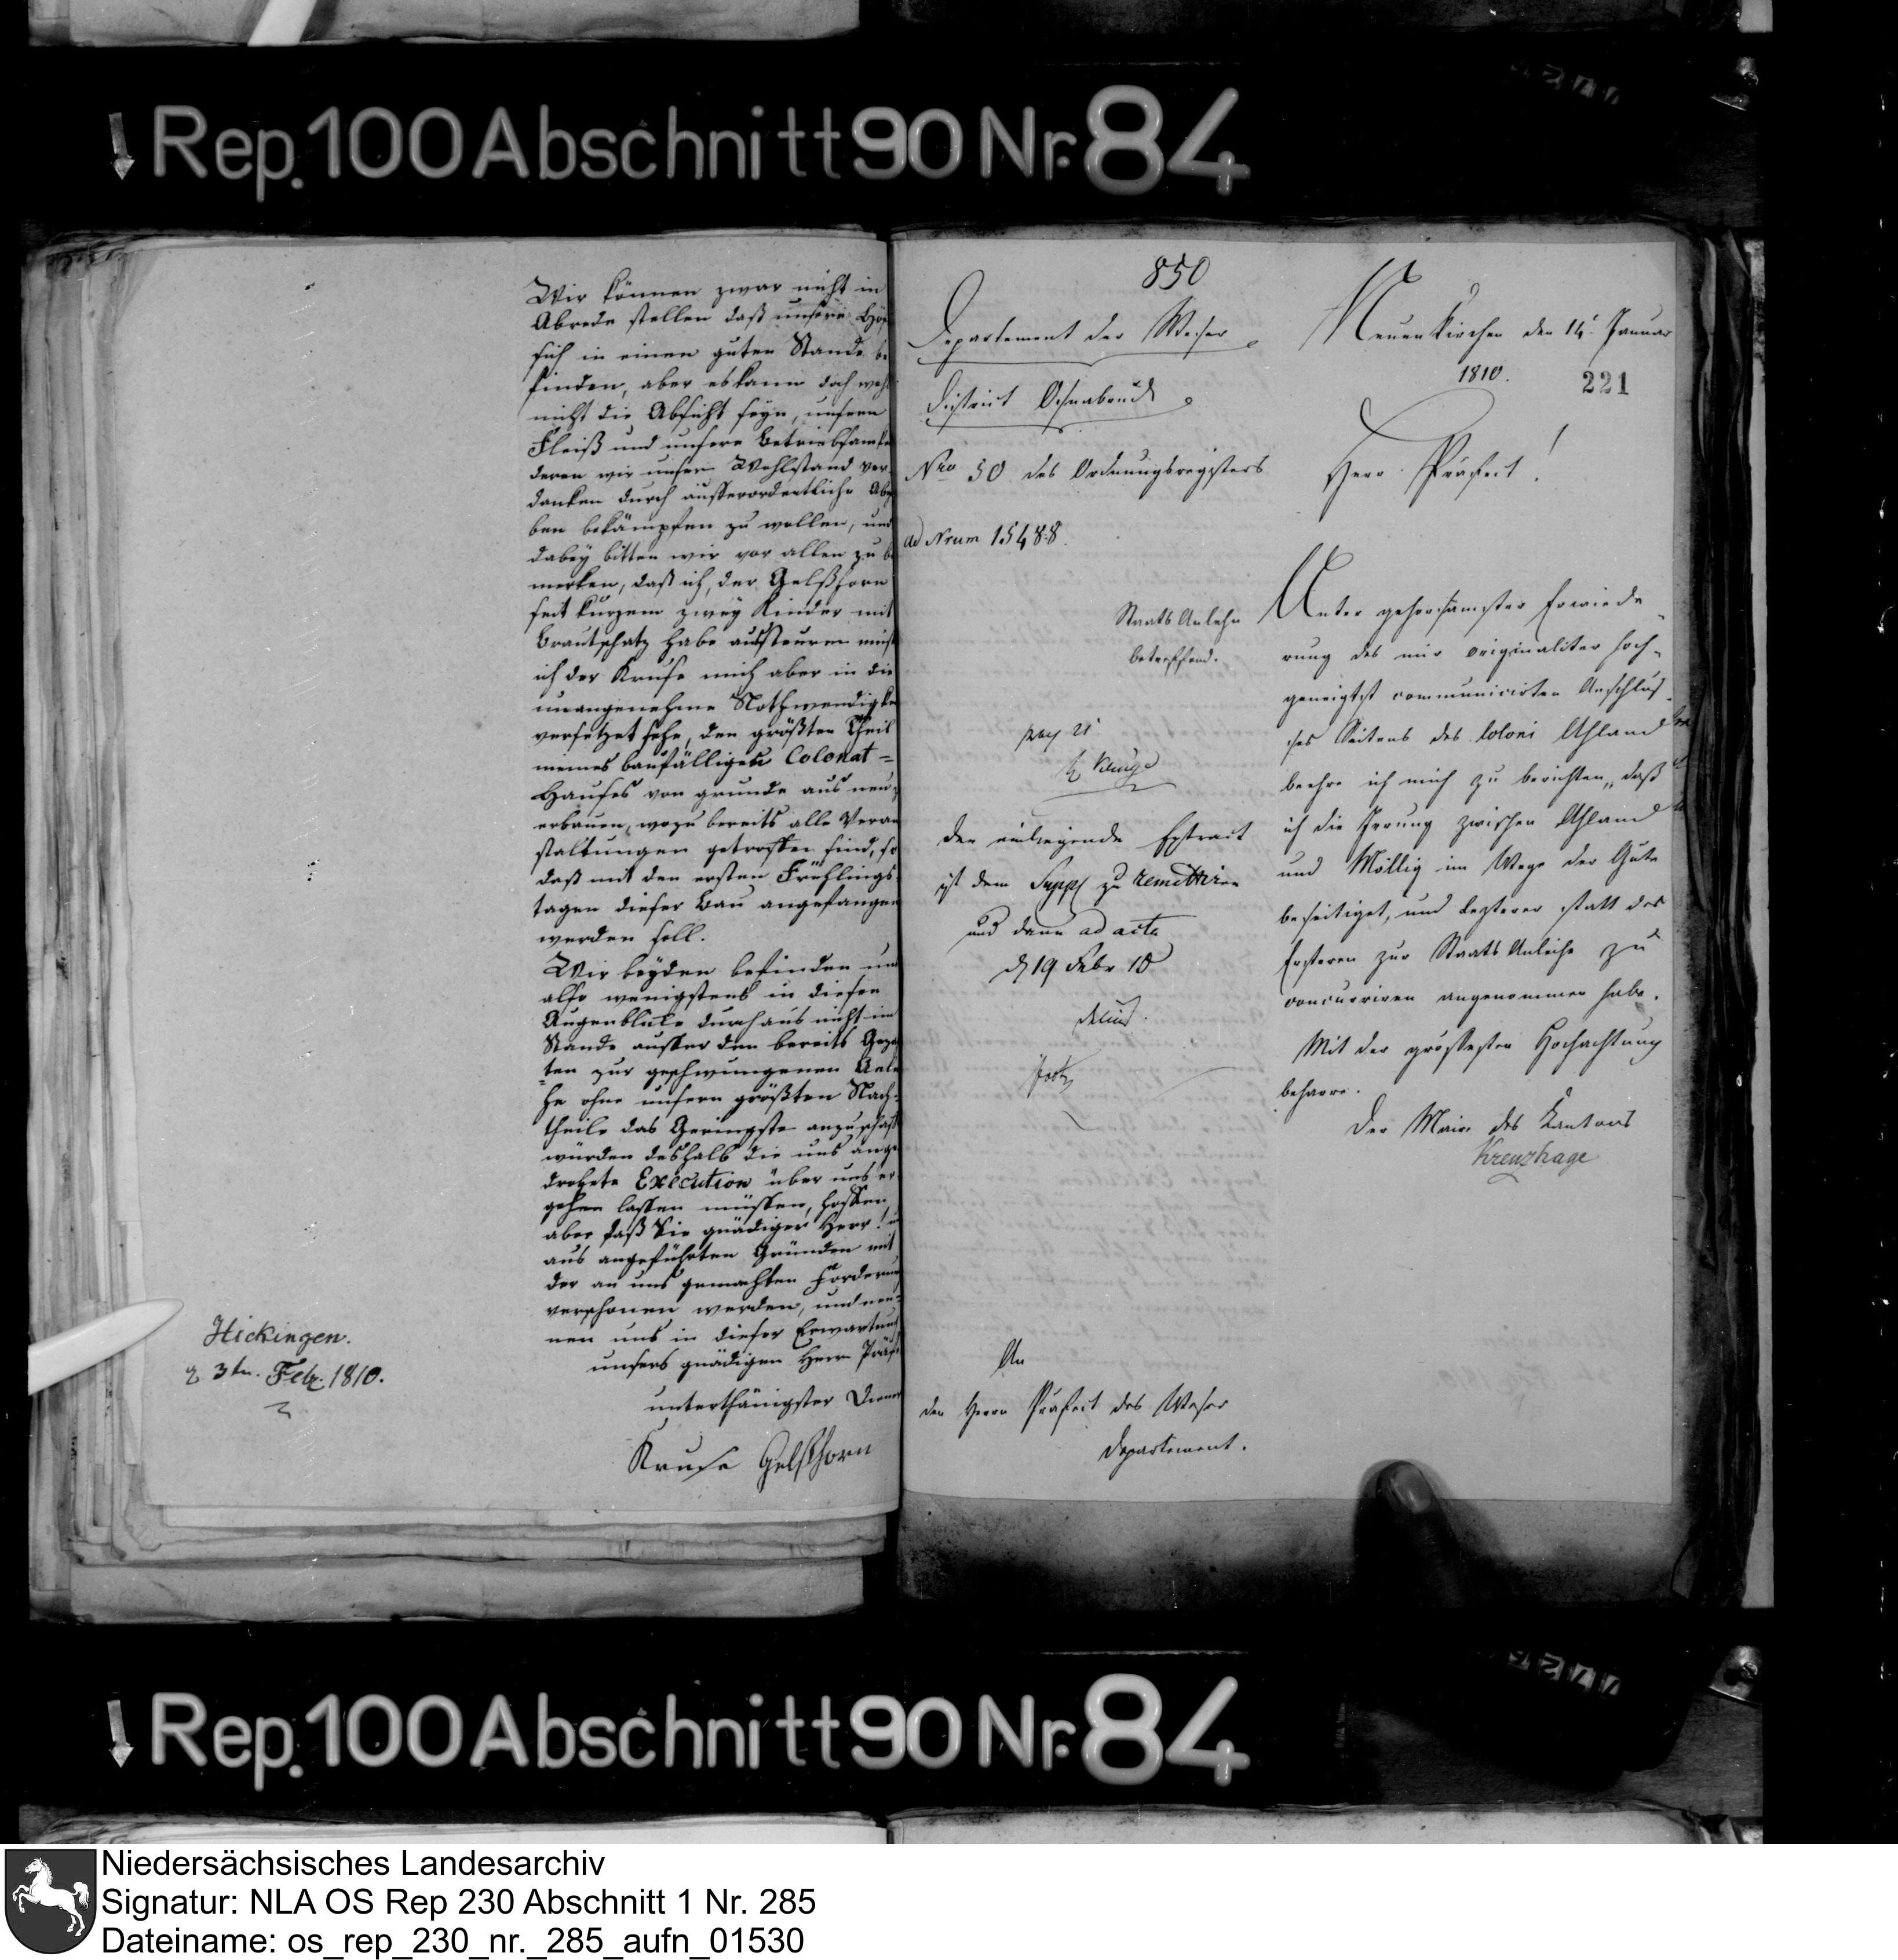 Rep. 100 Abschnitt 90 Nr. 84
Wir können zwar nicht in
Abrede stellen daß unsere
sich in einen guten Stande be
finden, aber es kann doch
nicht die Absicht seyn, unsern
Fleiß und unsere Betriebsamke
deren wir unsern Wohlstand ver-
danken durch ausserordentliche
ben bekämpfen zu wollen, und
dabey bitten wir vor allen zu be
merken, daß ich, der Gelßhorn
seit kurzem zwey Kinder mit
Brautschatz habe aussteuren
ich der Kruse mich aber in die
unangenehme Nothwendigke
versetzet sehe, den größten Theil
meines baufälligen Colonat-
Hauses von grunde aus neu
erbauen, wozu bereits alle Veran
staltungen getroffen sind, so
daß mit den ersten Frühlings-
tagen dieser Bau angefangen
werden soll.
Wir beyden befinden uns
also wenigstens in diesen
Augenblicke durchaus nicht im
Stande ausser den bereits
ten zur geschwungenen Anle
he ohne unsern größten Nach-
theile das Geringste anzuschaff
würden deshalb die uns ange
drohete Execution über uns er
gehen lassen müssen, hoffen
aber daß Sie gnädiger Herr!
aus angeführten Gründen mit
der an uns gemachten Forderung
verschonen werden, und nen-
nen uns in dieser Erwartung
unsers gnädigen Herrn Präf
unterthänigster Diener
Kruse Gelßhorn
Hickingen.
3tn. Febr. 1810.
850
Departement der Weser
District Osnabrück
Nro 50 des Ordnungsregisters
ad Nrum 15488.
Staats Anlehn
betreffend.
der einliegende Extract
ist dem Suppl zu remittiren
und dann ad acta
d 19 Febr 10
An
den Herrn Präfect des Weser
Departement.
Neuenkirchen den 14t Januar
1810.
221
Herr Präfect!
Unter gehorsamster Erwiede
rung des mir originaliter hoch-
geneigtst communicirten Anschlus
ses Seitens des Coloni Ahland
beehre ich mich zu berichten, daß
ich die Irrung zwischen Ahland
und Möllig im Wege der Güte
beseitiget, und Lezterer statt des
Ersteren zur Staats Anleihe zu
concurriren angenommen habe.
Mit der größesten Hochachtung
beharre.
Der Maire des Kantons
Kreuzhage
Rep. 100 Abschnitt 90 Nr. 84
Niedersächsisches Landesarchiv
Signatur: NLA OS Rep 230 Abschnitt 1 Nr. 285
Dateiname: os_rep_230_nr._285_aufn_01530